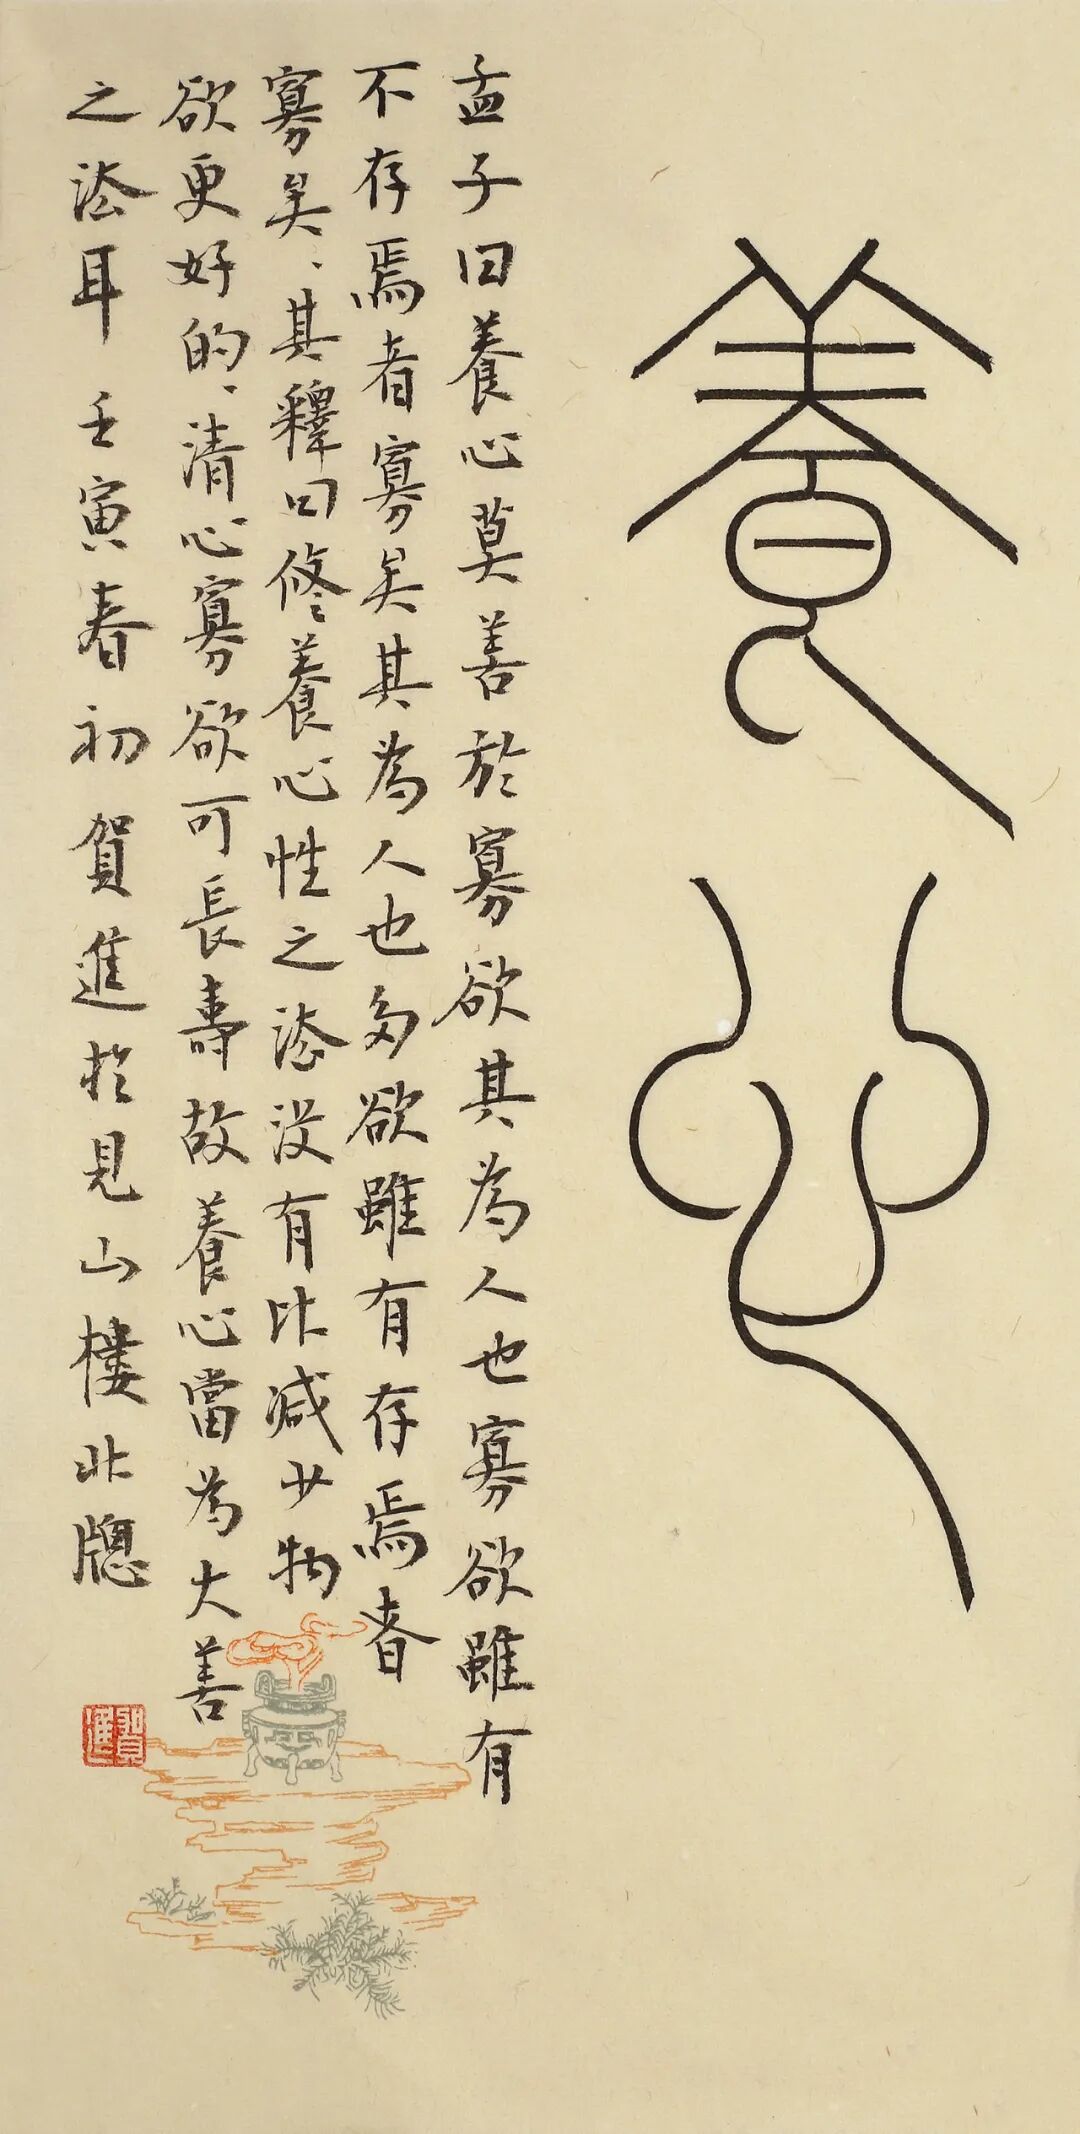 養心
孟子曰養心莫善於寡欲其為人也寡欲雖有
不存焉者寡矣其為人也多欲雖有存焉者
寡矣、其釋曰修養心性之法沒有比減少物
欲更好的、清心寡欲可長壽故養心當為大善
之法耳 壬寅春初賀進於見山樓北窗
賀進